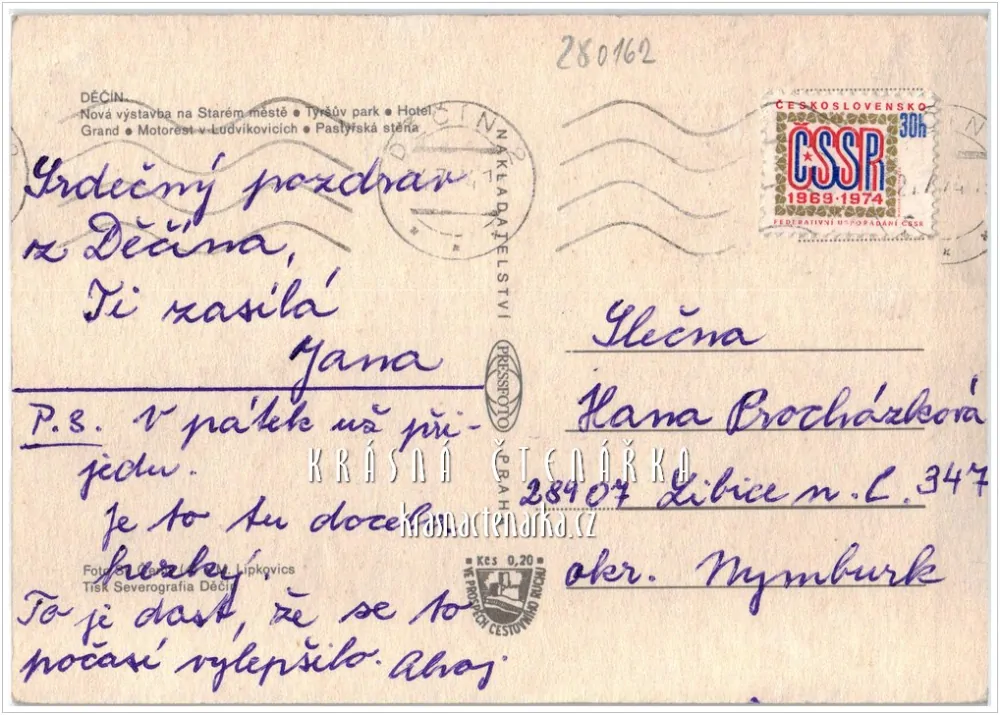 280162
DĚČÍN.
Nová výstavba na Starém městě ● Tyršův park ● Hotel
Grand ● Motorest v Ludvíkovicích ● Pastýřská stěna
DĚČÍN 2
ČESKOSLOVENSKO
30h
ČSSR
1969-1974
FEDERATIVNÍ USPOŘÁDÁNÍ ČSSR
Srdečný pozdrav
z Děčína,
Ti zasílá
Jana
P.S. V pátek už při-
jedu.
Je to tu docela
hezký.
To je dost, že se to
počasí vylepšilo. Ahoj
NAKLADATELSTVÍ
PRESSFOTO
PRAHA
Slečna
Hana Procházková
28907 Libice n. C. 347
okr. Nymburk
KRÁSNÁ ČTENÁŘKA
krasnactenarka.cz
Foto Lípkovics
Tisk Severografia Děčín
Kčs 0,20
VE PROSPĚCH CESTOVNÍHO RUCHU